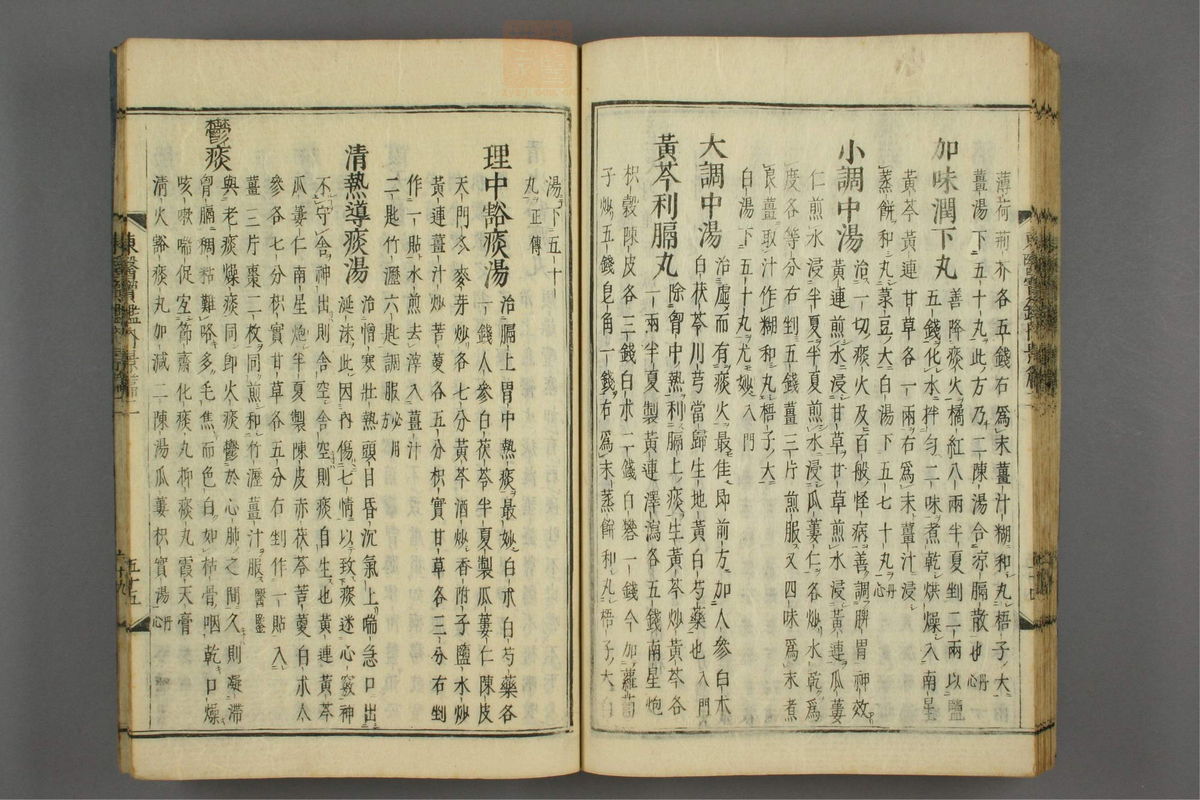 薄荷荊芥各五錢右爲末薑汁糊和丸梧子大
薑湯下五十丸此方乃二陳湯合凉膈散也丹心
加味潤下丸 善降痰火橘紅八兩半夏剉二兩以鹽
五錢化水拌勻二味煮乾烘燥入南星
黃芩黃連甘草各一兩右爲末薑汁浸
蒸餅和丸菉豆大白湯下五七十丸丹心
小調中湯 治一切痰火及百般怪病善調脾胃神效
黃連煎水浸甘草甘草煎水浸黃連瓜蔞
仁煎水浸半夏半夏煎水浸瓜蔞仁各炒水乾爲
度各等分右剉五錢薑三片煎服又四味爲末煮
良薑取汁作糊和丸梧子大
白湯下五十丸尤妙入門
大調中湯 治虛而有痰火最佳即前方加人參白朮
白茯苓川芎當歸生地黃白芍藥也入門
黃芩利膈丸 除胷中熱利膈上痰生黃芩炒黃芩各
一兩半夏製黃連澤瀉各五錢南星炮
枳殼陳皮各三錢白朮二錢白礬一錢今加蘿葍
子炒五錢皂角一錢右爲末蒸餅和丸梧子大白
湯下五十
丸正傳
理中豁痰湯 治膈上胃中熱痰最妙白朮白芍藥各
一錢人參白茯苓半夏製瓜蔞仁陳皮
天門冬麥芽炒各七分黃芩酒炒香附子鹽水炒
黃連薑汁炒苦蔓各五分枳實甘草各三分右剉
作一貼水煎去滓入薑汁
二匙竹瀝六匙調服必用方
清熱導痰湯 治憎寒壯熱頭目昏沉氣上喘急口出
涎沫此因內傷七情以致痰迷心竅神
不守舍神出則舍空舍空則痰自生也黃連黃芩
瓜蔞仁南星炮半夏製陳皮赤茯苓苦蔓白朮人
參各七分枳實甘草各五分右剉作一貼入
薑三片棗二枚同煎和竹瀝薑汁服醫鑒
鬱痰 與老痰燥痰同即火痰鬱於心肺之間久則凝滯
胷膈稠粘難咯多毛焦而色白如枯骨咽乾口燥
咳嗽喘促宜節齋化痰丸抑痰丸霞天膏
清火豁痰丸加減二陳湯瓜蔞枳實湯丹心
東醫寶鑑內景篇二
五十五